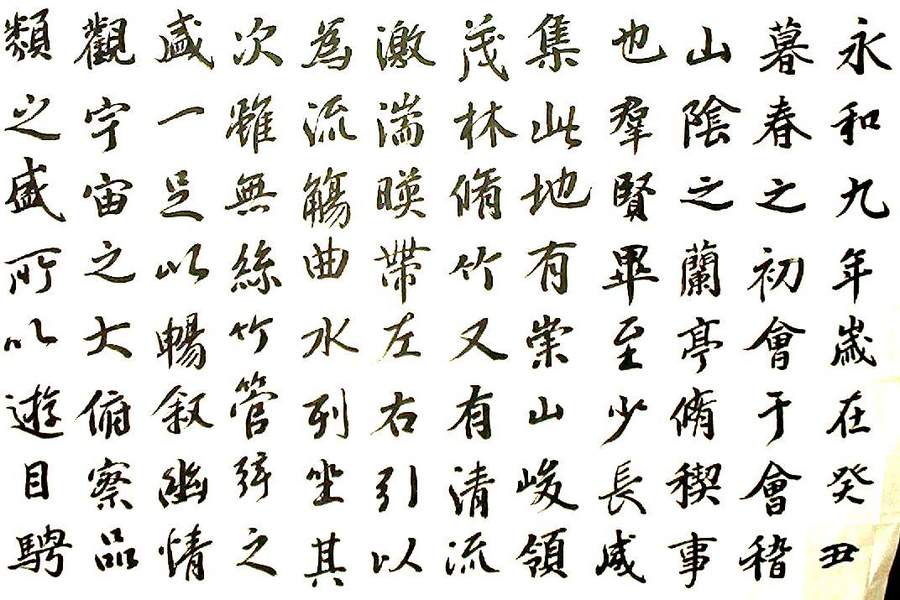 永和九年歲在癸丑
暮春之初會于會稽
山陰之蘭亭脩稧事
也羣賢畢至少長咸
集此地有崇山峻領
茂林脩竹又有清流
激湍暎帶左右引以
為流觴曲水列坐其
次雖無絲竹管弦之
盛一足以暢叙幽情
觀宇宙之大俯察品
類之盛所以遊目騁